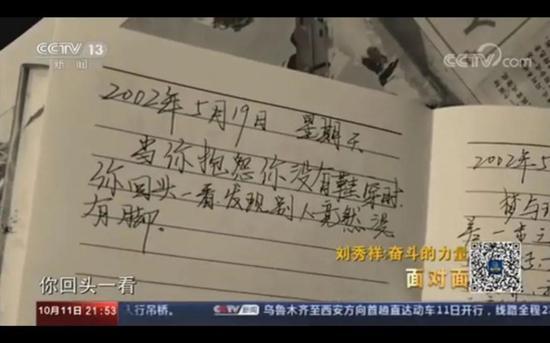 CCTV 13
新闻
CCTV.com
2002年5月19日 星期天
当你抱怨你没有鞋穿时,
你回头一看,发现别人竟然没
有脚.
2002年5
刘秀祥:奋斗的力量
面对面
你回头一看
10月11日 21:53
人行吊桥。 CCTV新闻 乌鲁木齐至西安方向首趟直达动车11日开行,线路全程2